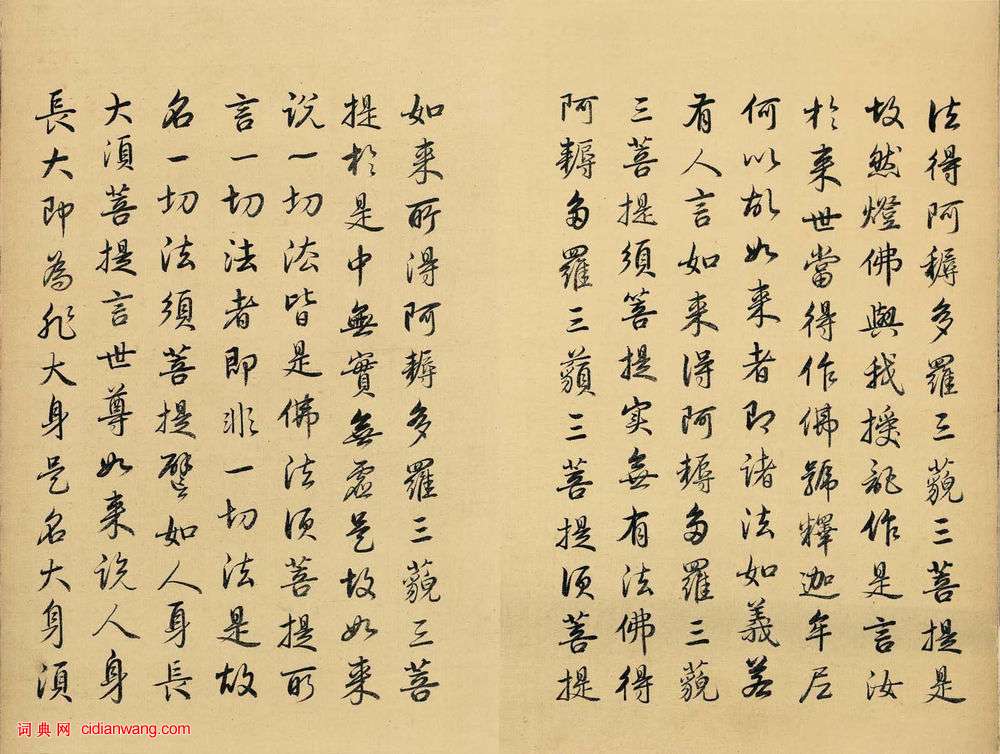 法得阿耨多羅三藐三菩提是
故然燈佛與我授記作是言汝
於来世當得作佛號釋迦牟尼
何以故如来者即諸法如義若
有人言如来得阿耨多羅三藐
三菩提須菩提实無有法佛得
阿耨多羅三藐三菩提須菩提
如来所得阿耨多羅三藐三菩
提於是中無實無虛是故如来
説一切法皆是佛法須菩提所
言一切法者即非一切法是故
名一切法須菩提譬如人身長
大須菩提言世尊如来説人身
長大即為非大身是名大身須
词典网 cidianwang.com